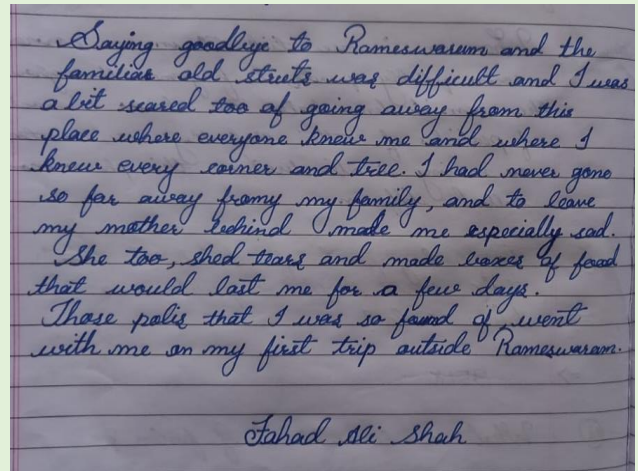 Saying goodbye to Rameswaram and the
familiar old streets was difficult and I was
a bit scared too of going away from this
place where everyone knew me and where I
knew every corner and tree. I had never gone
so far away fromy my family, and to leave
my mother behind made me especially sad.
She too, shed tears and made boxes of food
that would last me for a few days.
Those polis that I was so found of, went
with me on my first trip outside Rameswaram.
Fahad Ali Shah